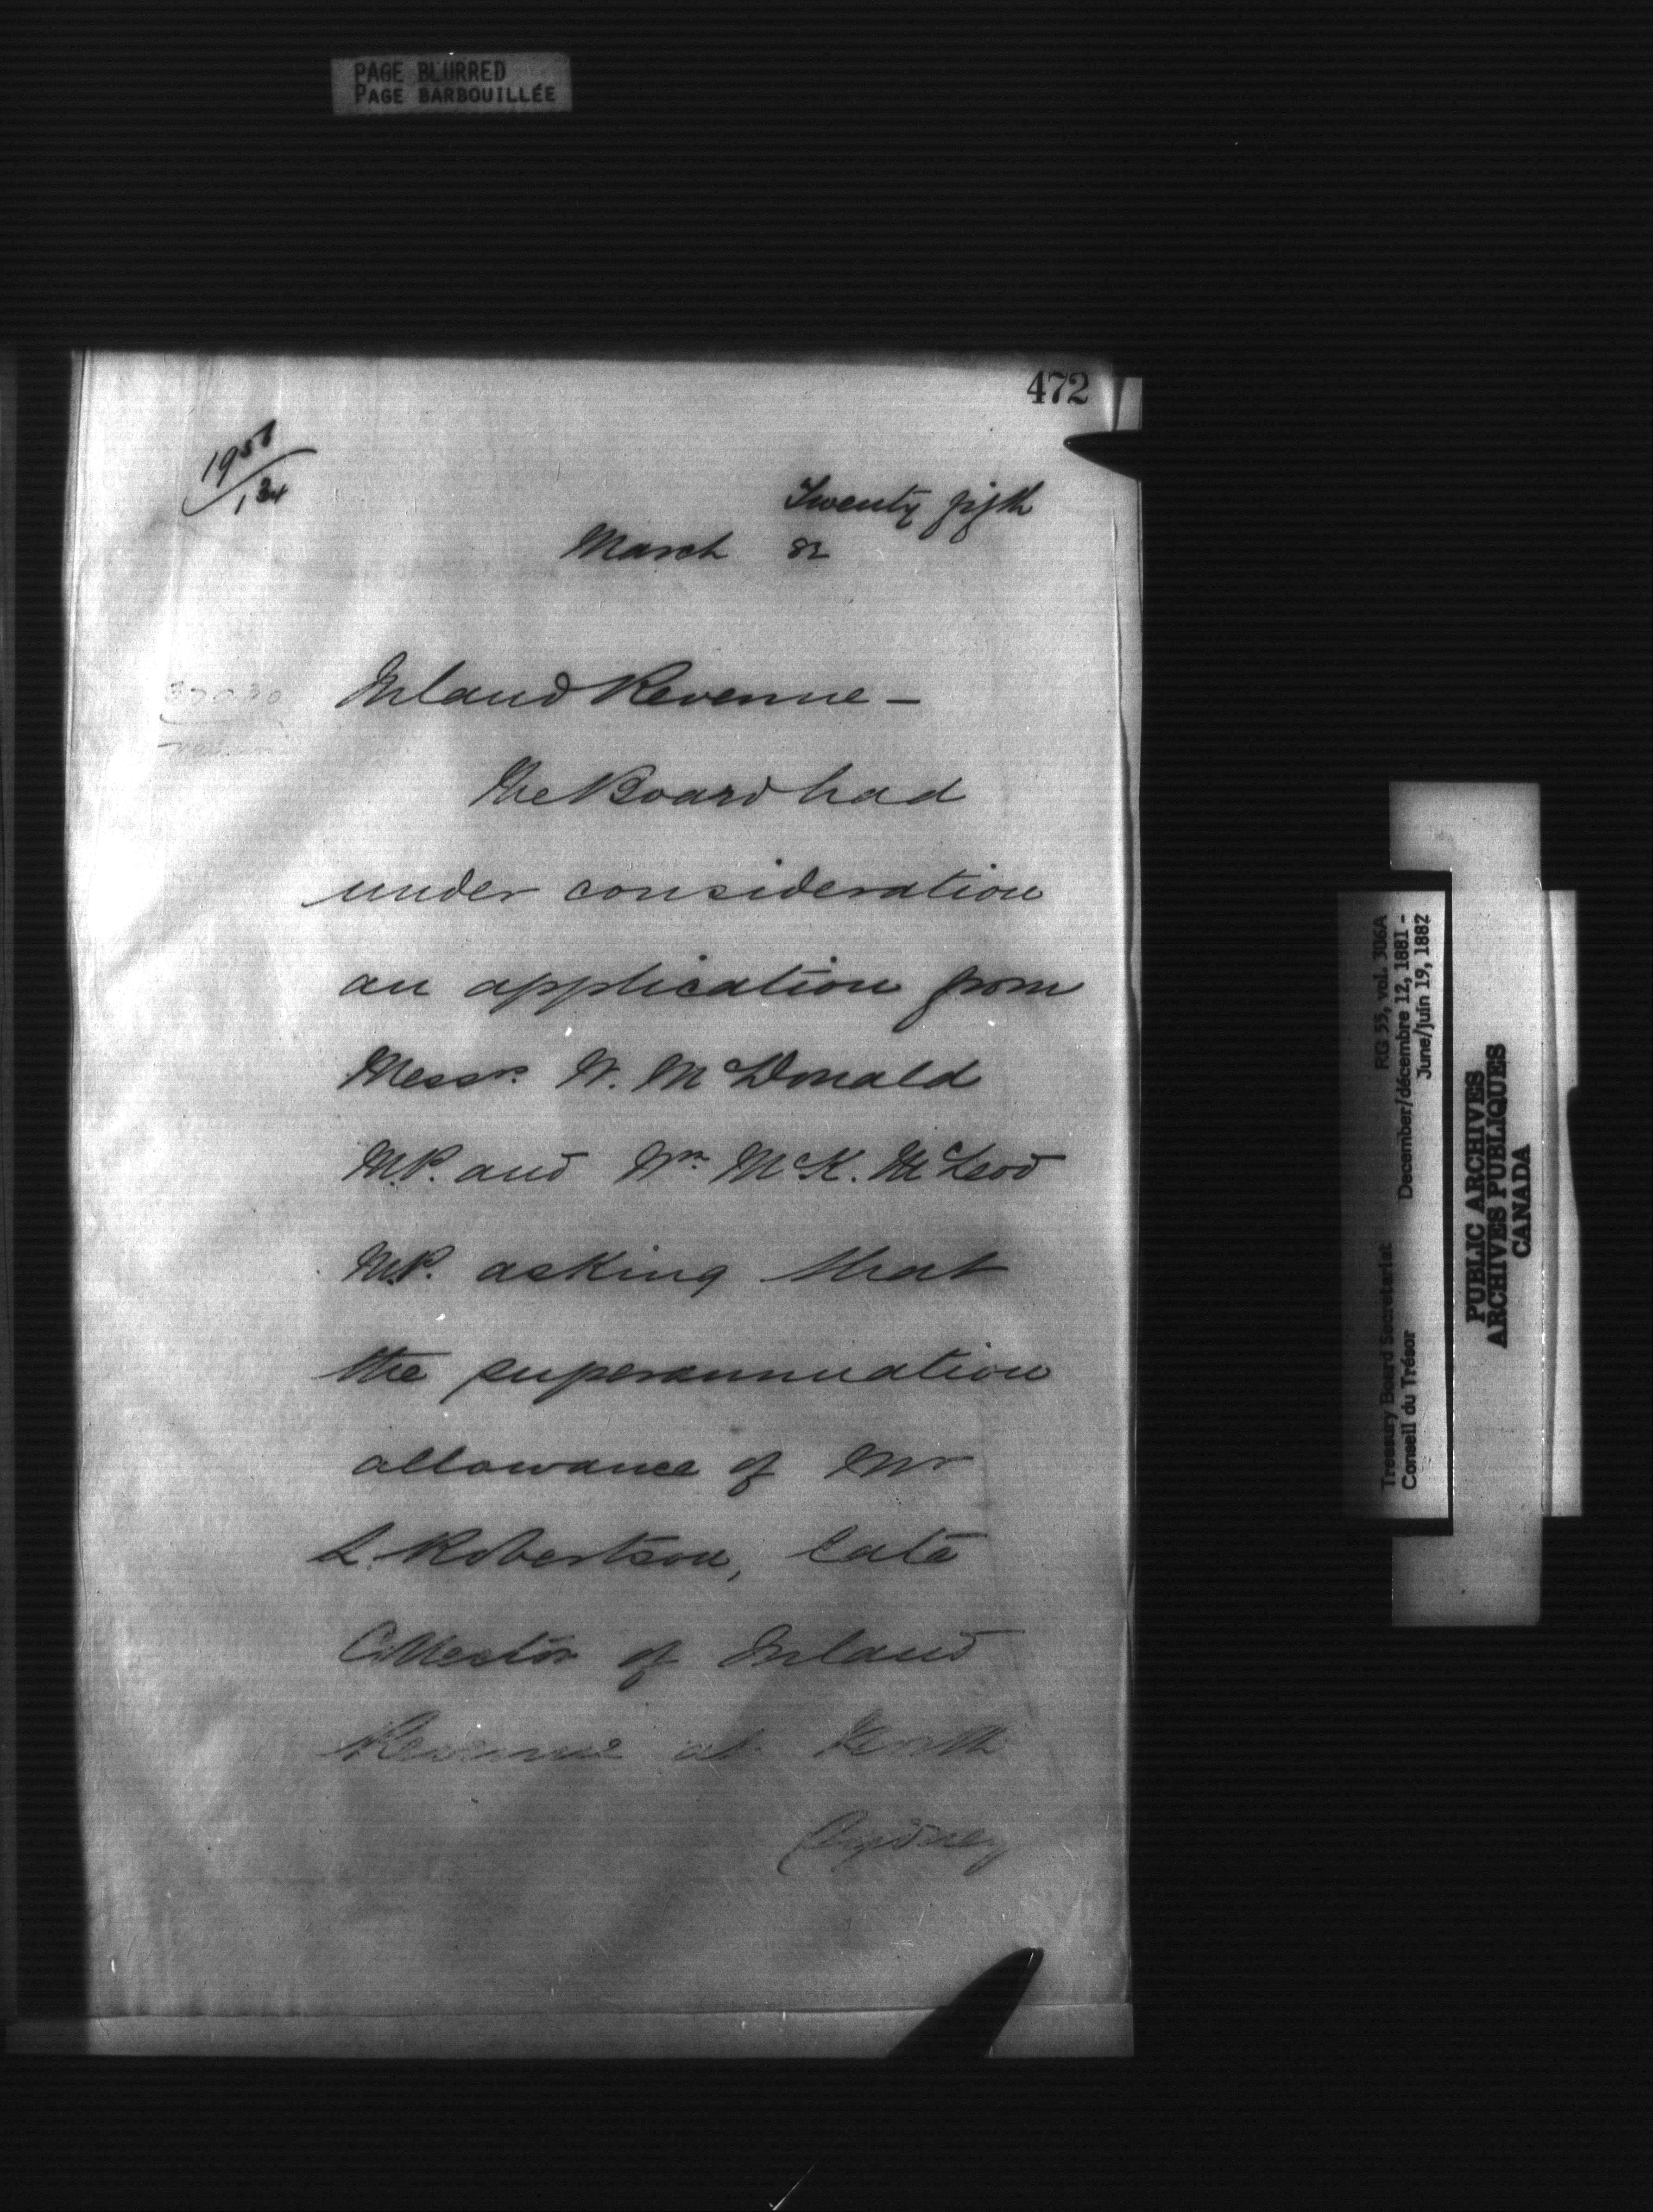 PAGE BLURRED
PAGE BARBOUILLÉE
472
Twenty fifth
March 82
Inland Revenue –
The Board had
under consideration
an application from
Messrs. W. McDonald
M.P. and Wm. McK. McLeod
M.P. asking that
the superannuation
allowance of Mr
L. Robertson, late
Collector of Inland
Revenue at North
Sydney
Treasury Board Secretariat RG 55, vol. 306A
Conseil du Trésor December/décembre 12, 1881 -
June/juin 19, 1882
PUBLIC ARCHIVES
ARCHIVES PUBLIQUES
CANADA